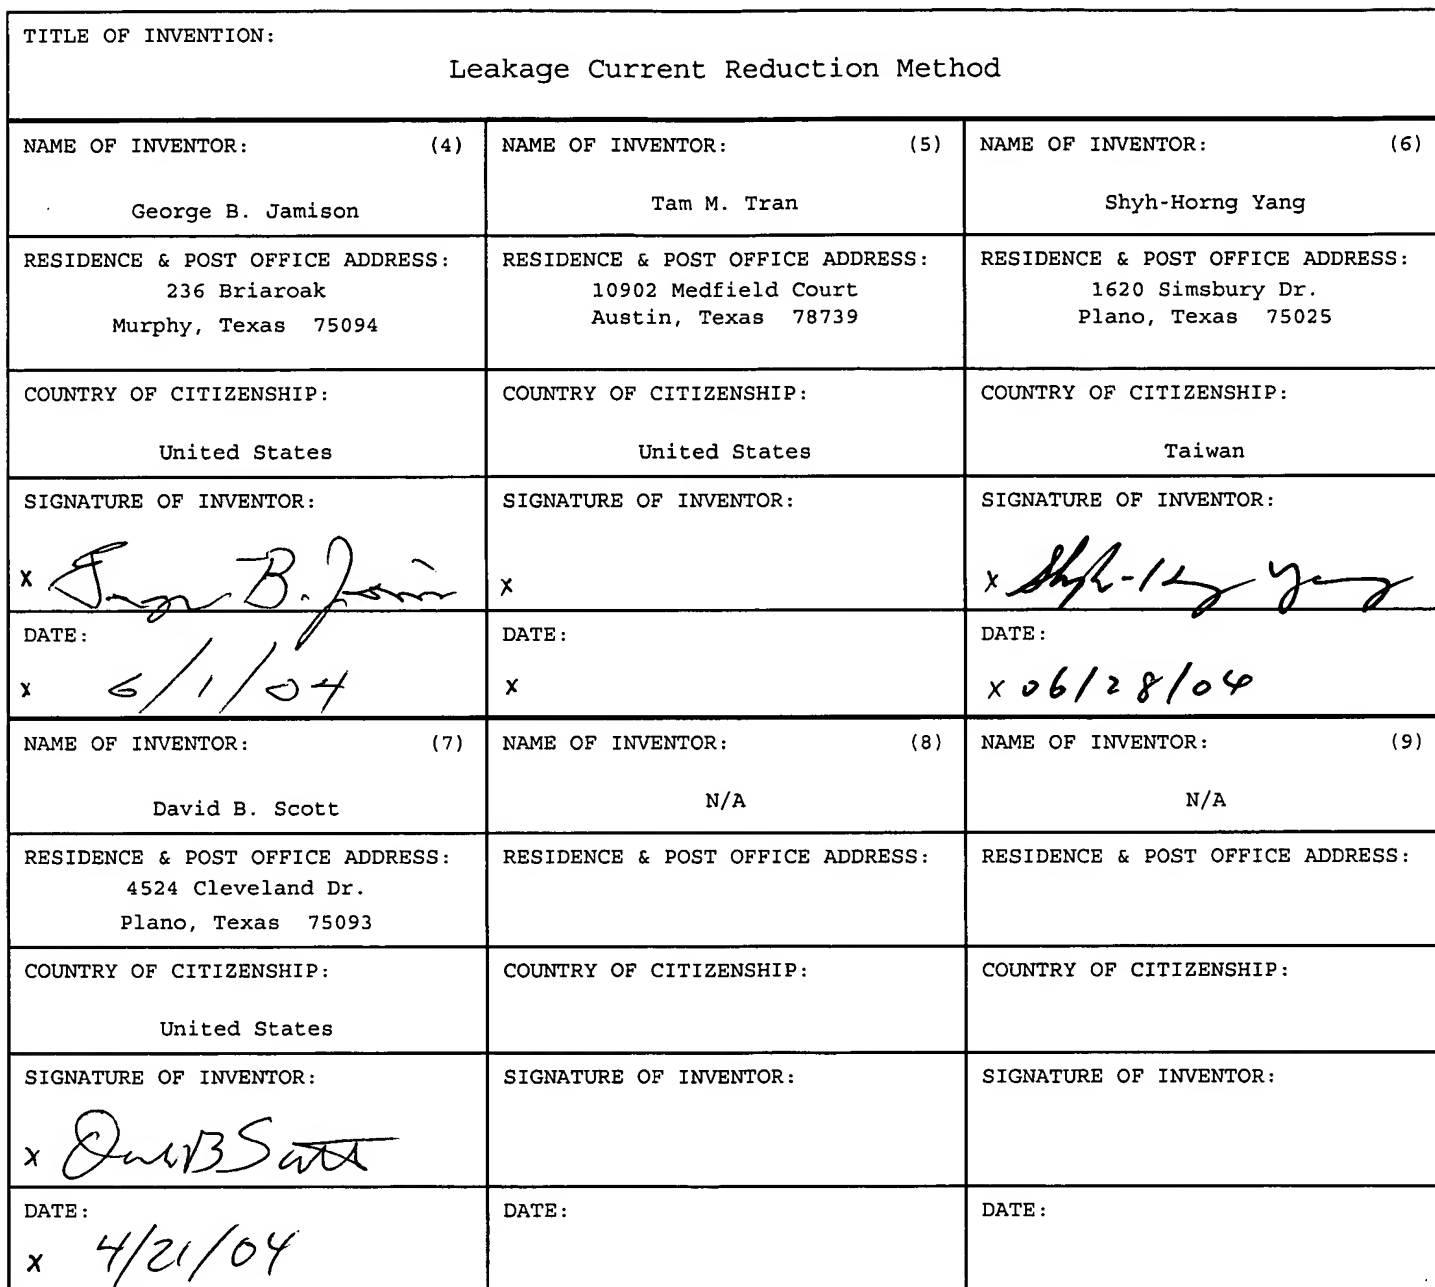 TITLE OF INVENTION:
Leakage Current Reduction Method
NAME OF INVENTOR: (4)
George B. Jamison
NAME OF INVENTOR: (5)
Tam M. Tran
NAME OF INVENTOR: (6)
Shyh-Horng Yang
RESIDENCE & POST OFFICE ADDRESS:
236 Briaroak
Murphy, Texas 75094
RESIDENCE & POST OFFICE ADDRESS:
10902 Medfield Court
Austin, Texas 78739
RESIDENCE & POST OFFICE ADDRESS:
1620 Simsbury Dr.
Plano, Texas 75025
COUNTRY OF CITIZENSHIP:
United States
COUNTRY OF CITIZENSHIP:
United States
COUNTRY OF CITIZENSHIP:
Taiwan
SIGNATURE OF INVENTOR:
x George B. Jamison
SIGNATURE OF INVENTOR:
x
SIGNATURE OF INVENTOR:
x Shyh-Horng Yang
DATE:
x 6/1/04
DATE:
x
DATE:
x 06/28/04
NAME OF INVENTOR: (7)
David B. Scott
NAME OF INVENTOR: (8)
N/A
NAME OF INVENTOR: (9)
N/A
RESIDENCE & POST OFFICE ADDRESS:
4524 Cleveland Dr.
Plano, Texas 75093
RESIDENCE & POST OFFICE ADDRESS:
RESIDENCE & POST OFFICE ADDRESS:
COUNTRY OF CITIZENSHIP:
United States
COUNTRY OF CITIZENSHIP:
COUNTRY OF CITIZENSHIP:
SIGNATURE OF INVENTOR:
x David B Scott
SIGNATURE OF INVENTOR:
SIGNATURE OF INVENTOR:
DATE:
x 4/21/04
DATE:
DATE: